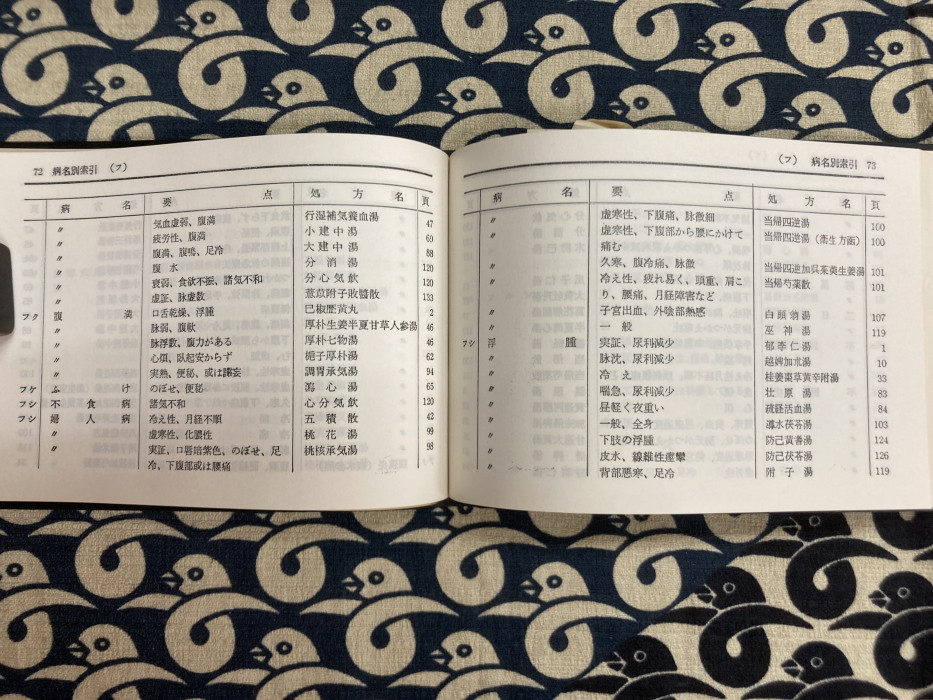 72 病名別索引 (フ)
病名 要点 処方名 頁
〃 気血虚弱、腹満 行湿補気養血湯 47
〃 疲労性、腹満 小建中湯 69
〃 腹満、腹鳴、足冷 大建中湯 88
〃 腹水 分消湯 120
〃 衰弱、食欲不振、諸気不和 分心気飲 120
〃 虚証、脉虚数 薏苡附子敗醬散 133
フク 腹満 口舌乾燥、浮腫 已椒歴黄丸 2
〃 脉弱、腹軟 厚朴生姜半夏甘草人参湯 46
〃 脉浮数、腹力がある 厚朴七物湯 46
〃 心煩、臥起安からず 梔子厚朴湯 62
〃 実熱、便秘、或は譫妄 調胃承気湯 94
フケ ふけ のぼせ、便秘 瀉心湯 65
フシ 不食病 諸気不和 分心気飲 120
フシ 婦人病 冷え性、月経不順 五積散 42
〃 虚寒性、化膿性 桃花湯 99
〃 実証、口唇暗紫色、のぼせ、足 桃核承気湯 98
冷、下腹部或は腰痛
(フ) 病名別索引 73
病名 要点 処方名 頁
〃 虚寒性、下腹痛、脉微細 当帰四逆湯 100
〃 虚寒性、下腹部から腰にかけて 当帰四逆湯(衛生方函) 100
痛む
〃 久寒、腹冷痛、脉微 当帰四逆加呉茱萸生姜湯 101
〃 冷え性、疲れ易く、頭重、肩こ 当帰芍薬散 101
り、腰痛、月経障害など
〃 子宮出血、外陰部熱感 白頭翁湯 107
〃 一般 巫神湯 119
フシ 浮腫 実証、尿利減少 郁李仁湯 1
〃 脉沈、尿利減少 越婢加朮湯 10
〃 冷え 桂姜棗草黄辛附湯 33
〃 喘急、尿利減少 壮原湯 83
〃 昼軽く夜重い 疏経活血湯 84
〃 一般、全身 導水茯苓湯 103
〃 下肢の浮腫 防已黄耆湯 124
〃 皮水、線維性痙攣 防已茯苓湯 126
〃 背部悪寒、足冷 附子湯 119